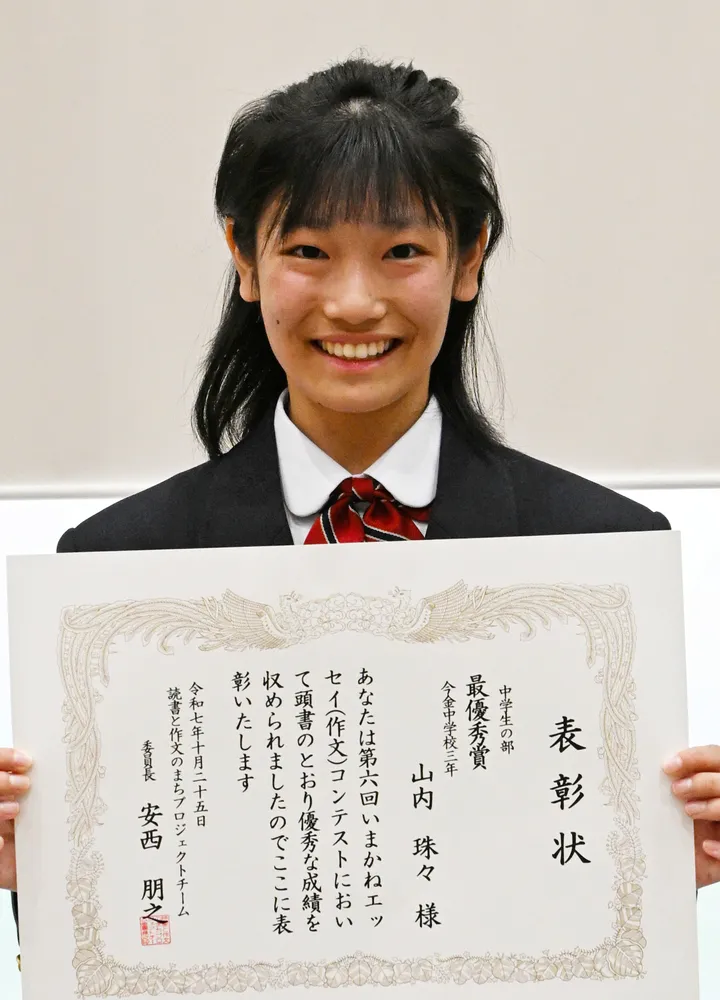 表彰状
中学生の部
最優秀賞
今金中学校三年
山内 珠々 様
あなたは第六回いまかねエッ
セイ(作文)コンテストにおい
て頭書のとおり優秀な成績を
収められましたのでここに表
彰いたします
令和七年十月二十五日
読書と作文のまちプロジェクトチーム
委員長 安西 朋之